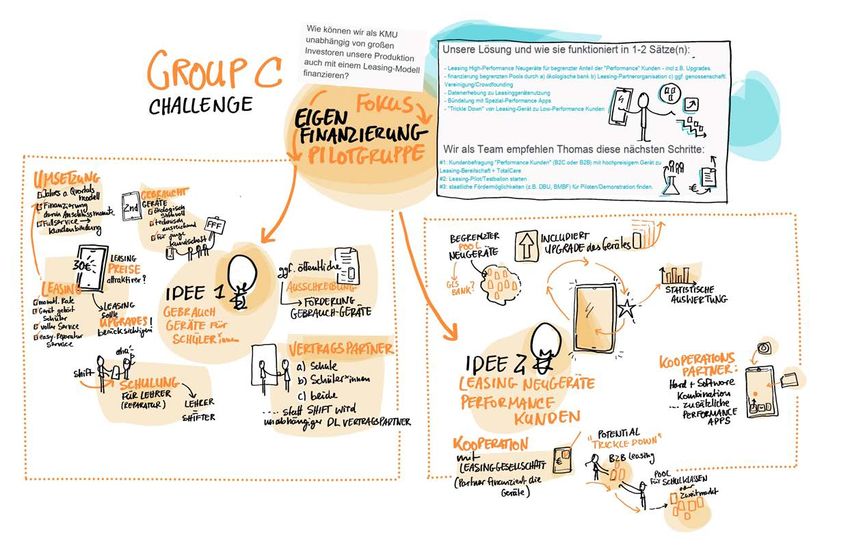 GROUP C
CHALLENGE
Wie können wir als KMU
unabhängig von großen
Investoren unsere Produktion
auch mit einem Leasing-Modell
finanzieren?
FOKUS
EIGEN
FINANZIERUNG
PILOTGRUPPE
Unsere Lösung und wie sie funktioniert in 1-2 Sätze(n):
- Leasing High-Performance Neugeräte für begrenzter Anteil der "Performance" Kunden - incl z.B. Upgrades.
- finanzierung begrenzten Pools durch a) ökologische bank b) Leasing-Partnerorganisation c) ggf. genossenschaft.
Vereinigung/Crowdfunding
- Datenerhebung zu Leasinggerätenutzung
- Bündelung mit Spezial-Performance Apps
- "Trickle Down" von Leasing-Gerät zu Low-Performance Kunden
Wir als Team empfehlen Thomas diese nächsten Schritte:
#1: Kundenbefragung "Performance Kunden" (B2C oder B2B) mit hochpreisigem Gerät zu
Leasing-Bereitschaft + TotalCare
#2: Leasing-Pilot/Testballon starten
#3: staatliche Fördermöglichkeiten (z.B. DBU, BMBF) für Piloten/Demonstration finden.
UMSETZUNG
Jahres o Quartals
modell
Finanzierung
durch Anschlussmiete
Fullservice →
Kundenbindung
2nd
GEBRAUCHT
GERÄTE
Ökologisch
sinnvoll
technisch
ausreichend
für junge
Kundschaft
FFF
30€
LEASING
PREISE
attraktiver?
LEASING
monatl. Rate
Gerät gehört
Schüler
voller Service
easy reparatur
Service
LEASING
solle
UPGRADES
berücksichtigen!
IDEE 1
GEBRAUCH
GERÄTE FÜR
SCHÜLER*innen
ggf. öffentliche
AUSSCHREIBUNG
FÖRDERUNG
GEBRAUCH-GERÄTE
shift
SCHULUNG
FÜR LEHRER
(REPARATUR)
LEHRER
=
SHIFTER
VERTRAGSPARTNER
a) Schule
b) Schüler*innen
c) beide
.... statt SHIFT wird
unabhängiger DL VERTRAGSPARTNER
BEGRENZTER
POOL
NEUGERÄTE
GLS
BANK?
INCLUDIERT
UPGRADE des Gerätes
STATISTISCHE
AUSWERTUNG
IDEE 2
LEASING NEUGERÄTE
PERFORMANCE
KUNDEN
KOOPERATIONS
PARTNER:
Hard + Software
Kombination
... zusätzliche
PERFORMANCE
APPS
KOOPERATION
mit
LEASINGGESELLSCHAFT
(Partner finanziert die
Geräte)
€
POTENTIAL
"TRICKLE DOWN"
B2B Leasing
POOL
FÜR SCHULKLASSEN
Zweitmarkt